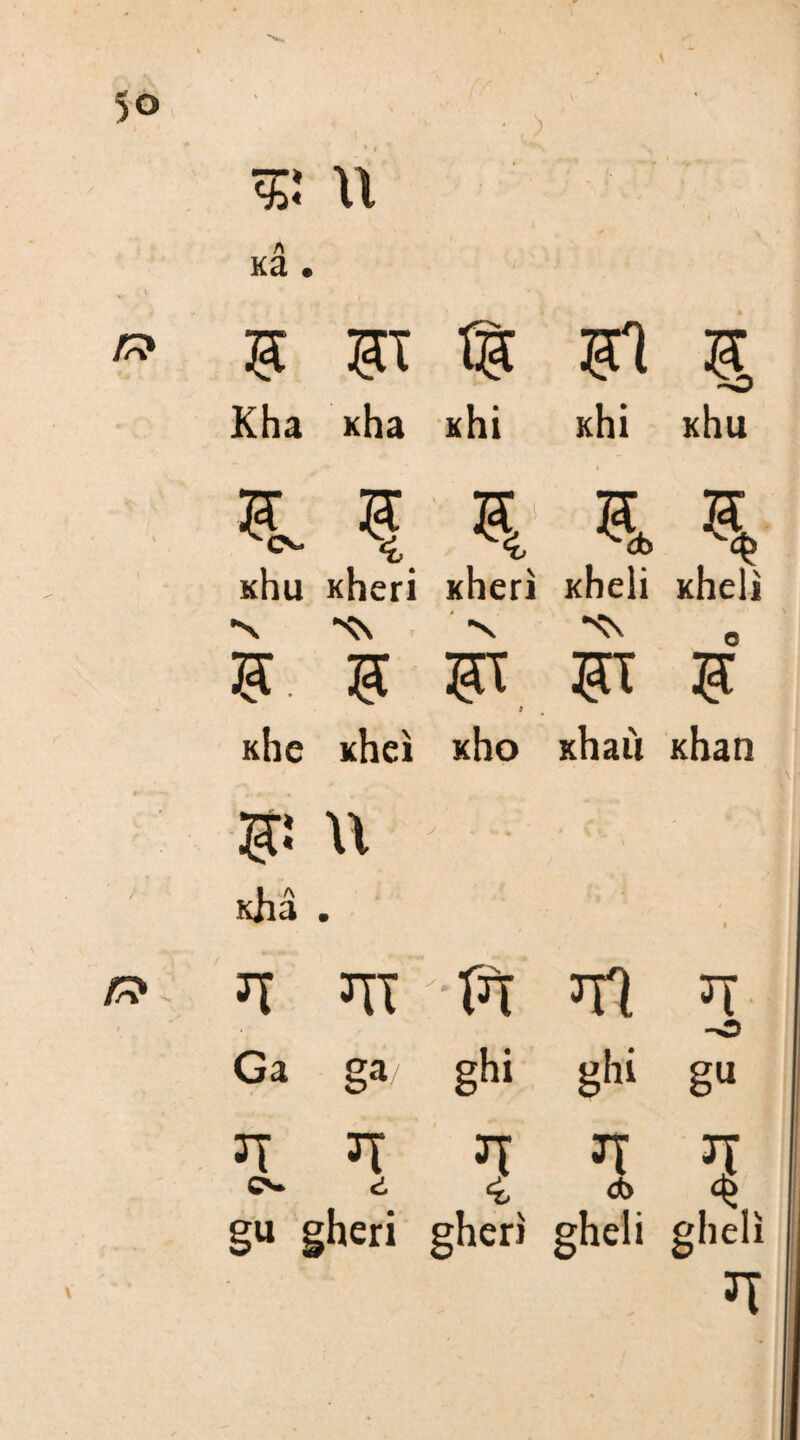 50
कः ॥
kâ .
ख खा खि खी खु
Kha kha khi khi khu
खू खृ खॄ खॢ खॣ
khu kheri kherì kheli khelì
खे खै खो खौ खं
khe kheì kho khaù khan
खः ॥
khâ .
ग गा गि गी गु
Ga ga ghi ghi gu
गू गृ गॄ गॢ गॣ
gu gheri gherì gheli ghelì
ग